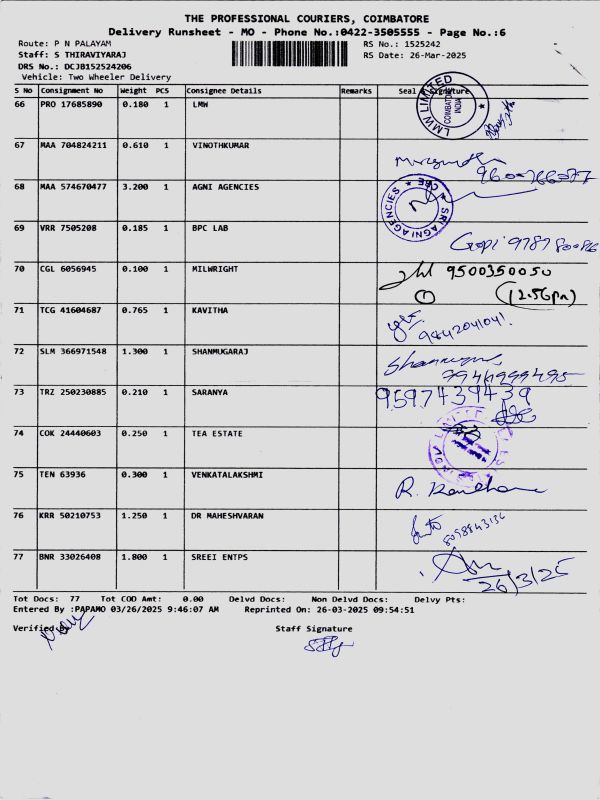 THE PROFESSIONAL COURIERS, COIMBATORE
Delivery Runsheet - MO - Phone No.:0422-3505555 - Page No.:6
Route: P N PALAYAM RS No.: 1525242
Staff: S THIRAVIYARAJ RS Date: 26-Mar-2025
DRS No.: DCJB152524206
Vehicle: Two Wheeler Delivery
S No Consignment No Weight PCS Consignee Details Remarks Seal & Signature
66 PRO 17685890 0.180 1 LMW
LMW LIMITED COIMBATORE INDIA
67 MAA 704824211 0.610 1 VINOTHKUMAR
68 MAA 574670477 3.200 1 AGNI AGENCIES
SRI AGNI AGENCIES ★ CBE ★
69 VRR 7505208 0.185 1 BPC LAB
Gopi 9787800816
70 CGL 6056945 0.100 1 MILWRIGHT
9500350050
1 (12.56pm)
71 TCG 41604687 0.765 1 KAVITHA
9442041041.
72 SLM 366971548 1.300 1 SHANMUGARAJ
73 TRZ 250230885 0.210 1 SARANYA
9597439439
74 COK 24440603 0.250 1 TEA ESTATE
75 TEN 63936 0.300 1 VENKATALAKSHMI
76 KRR 50210753 1.250 1 DR MAHESHVARAN
77 BNR 33026408 1.800 1 SREEI ENTPS
26/3/25
Tot Docs: 77 Tot COD Amt: 0.00 Delvd Docs: Non Delvd Docs: Delvy Pts:
Entered By :PAPAMO 03/26/2025 9:46:07 AM Reprinted On: 26-03-2025 09:54:51
Verified By Staff Signature